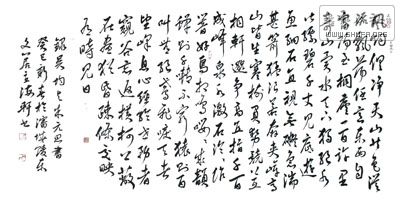 風烟俱净天山共色從
流飄蕩任意東西自
富陽至桐廬一百許里
奇山異水天下獨絕水
皆縹碧千丈見底游
魚細石直視無礙急湍
甚箭猛浪若奔夾岸高
山皆生寒樹負勢競上互
相軒邈爭高直指千百
成峰泉水激石泠泠作
響好鳥相鳴嚶嚶成韻
蟬則千轉不窮猿則百
叫無絕鳶飛戾天者
望峰息心經綸世務者
窺谷忘返橫柯上蔽
在晝猶昏疏條交映
有時見日
錄吳均與朱元思書
癸巳新春於